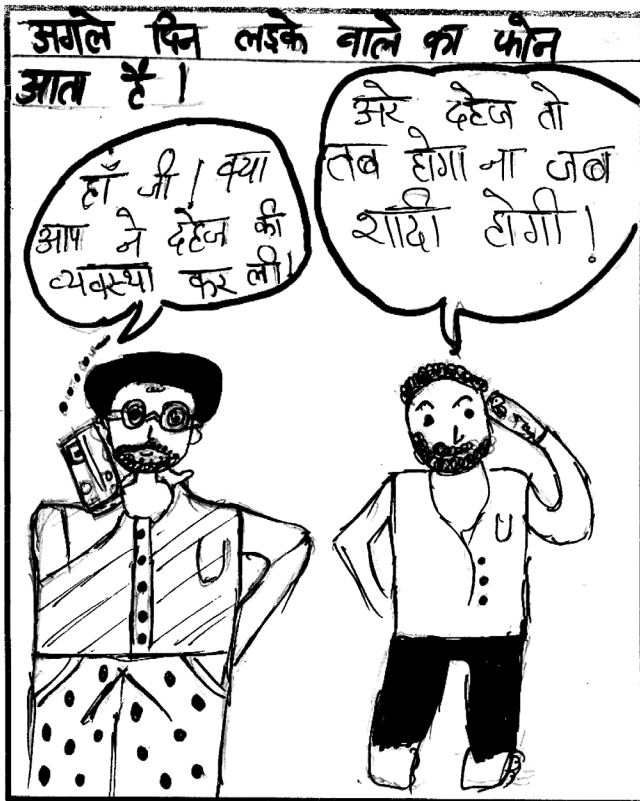 अगले दिन लड़के वाले का फोन
आता है।
हाँ जी! क्या
आप ने दहेज की
व्यवस्था कर ली!
अरे दहेज तो
तब होगा ना जब
शादी होगी!